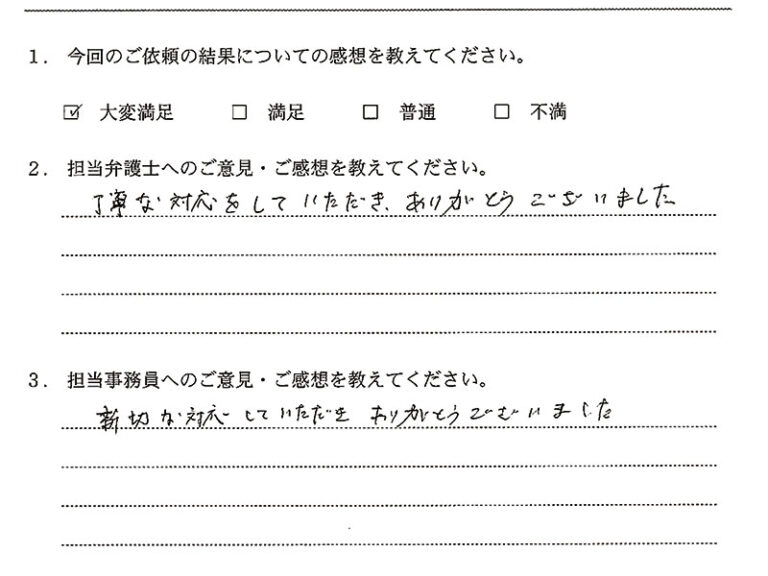 1. 今回のご依頼の結果についての感想を教えてください。
☑ 大変満足 □ 満足 □ 普通 □ 不満
2. 担当弁護士へのご意見・ご感想を教えてください。
丁寧な対応をしていただき、ありがとうございました
3. 担当事務員へのご意見・ご感想を教えてください。
親切な対応していただき ありがとうございました